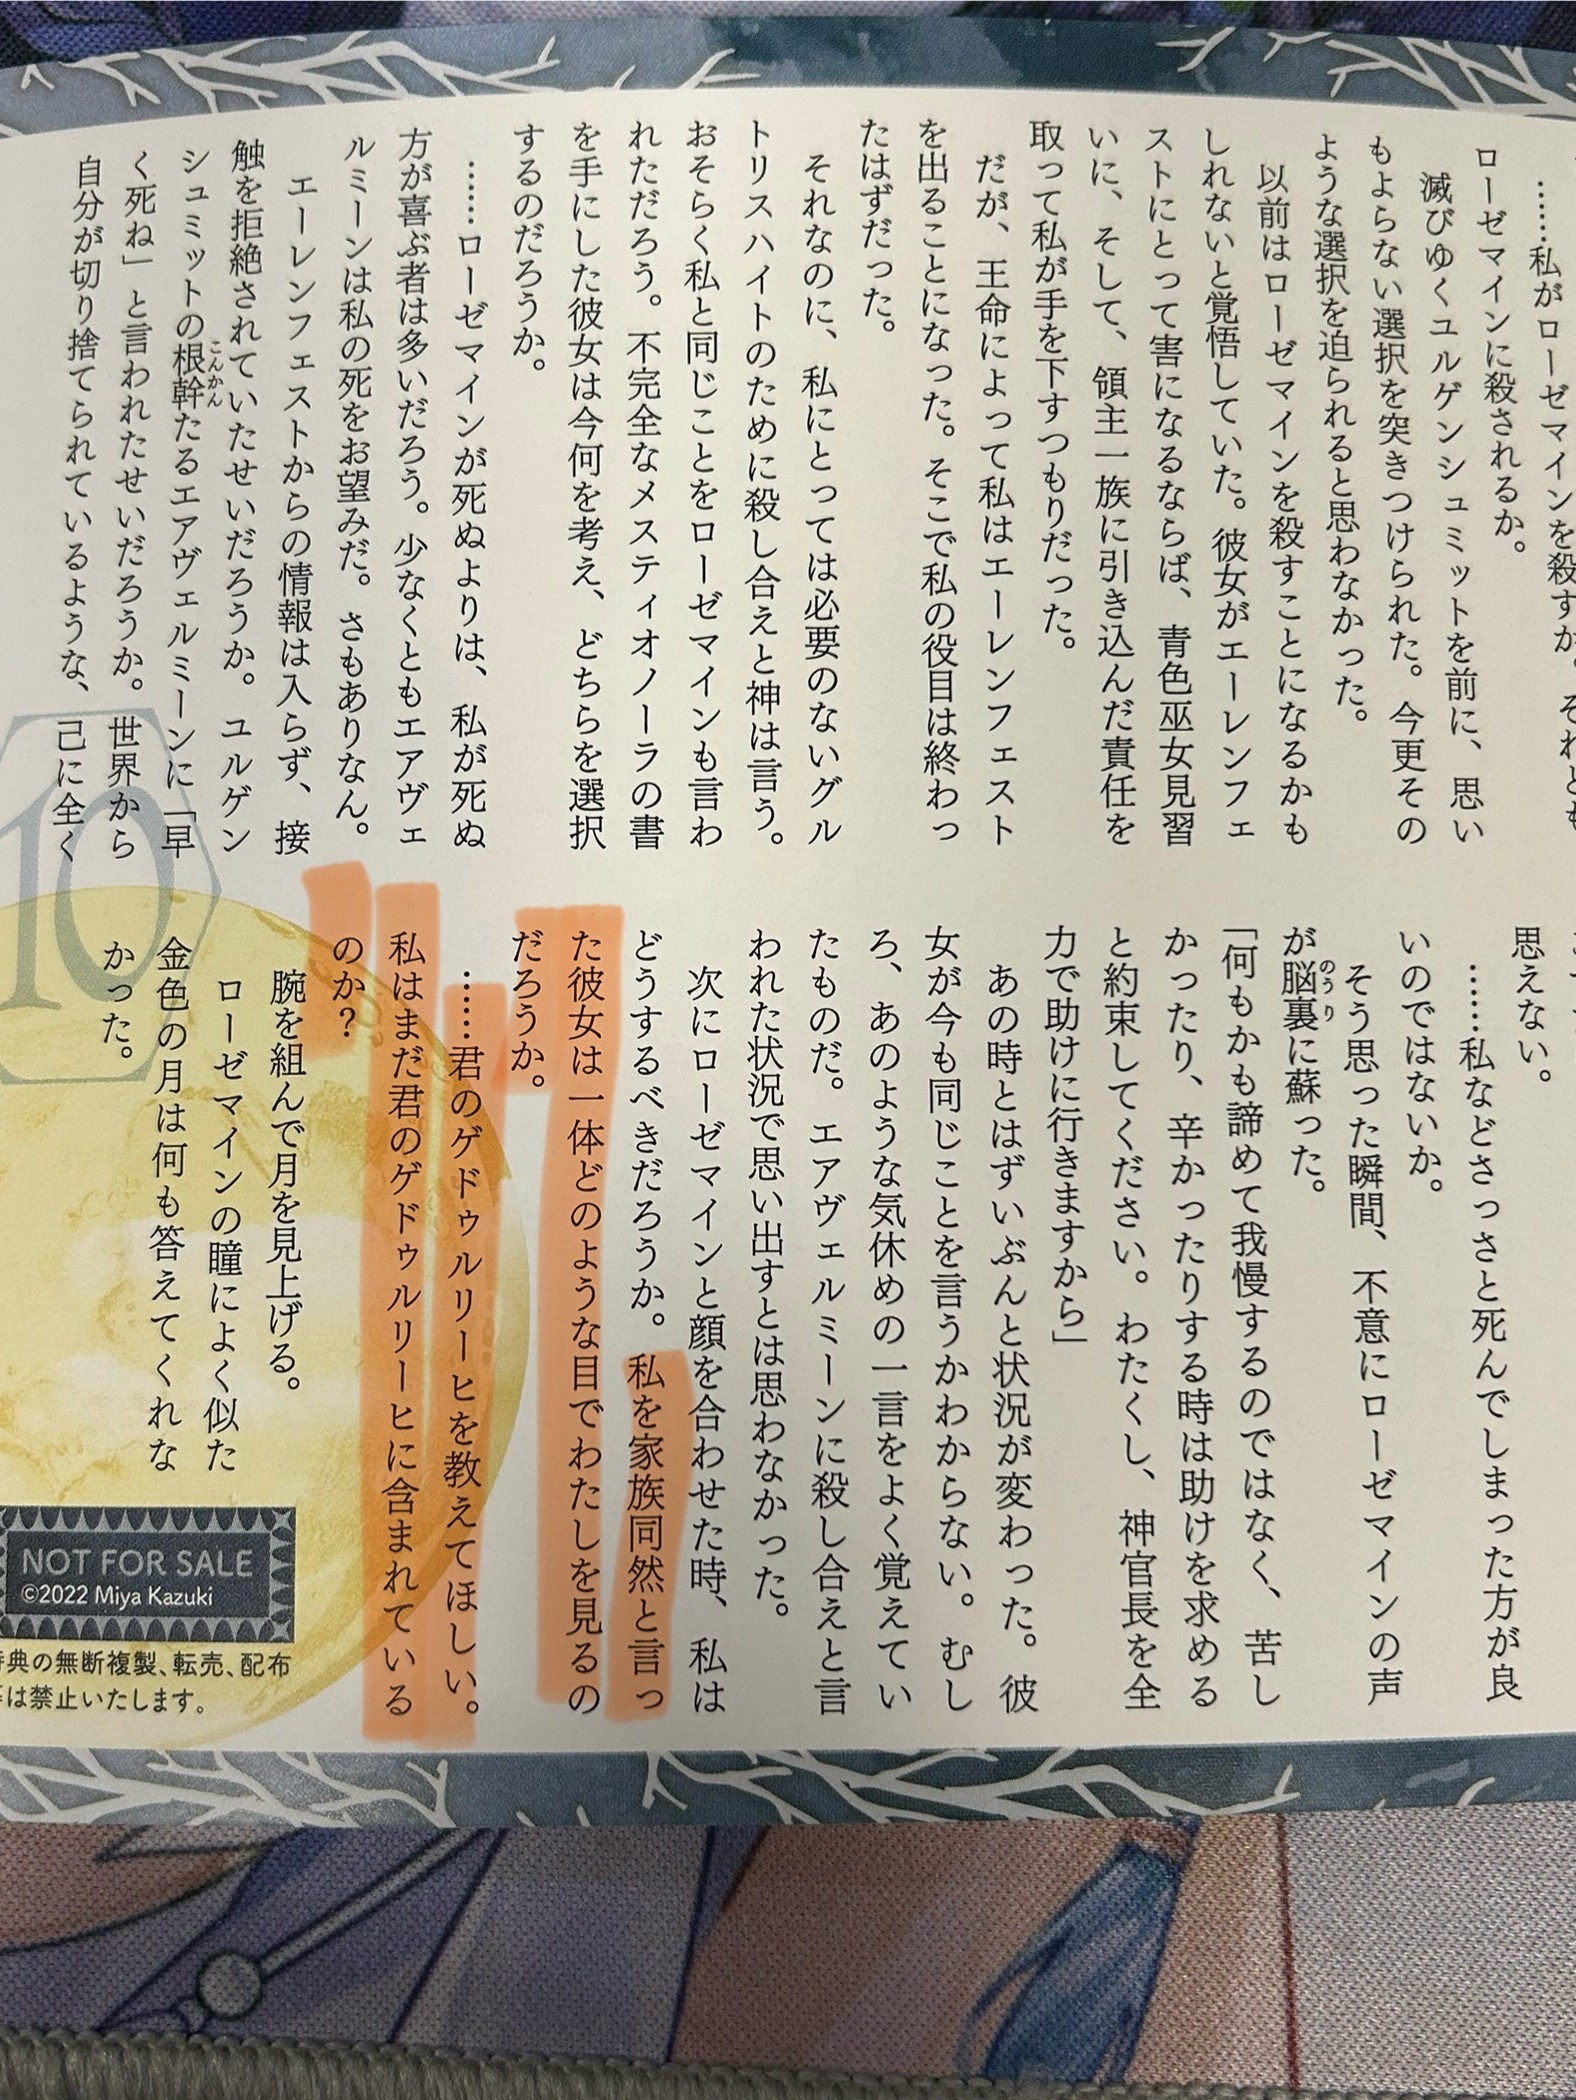 ……私がローゼマインを殺すか。それとも
ローゼマインに殺されるか。
滅びゆくユルゲンシュミットを前に、思い
もよらない選択を突きつけられた。今更その
ような選択を迫られると思わなかった。
以前はローゼマインを殺すことになるかも
しれないと覚悟していた。彼女がエーレンフェ
ストにとって害になるならば、青色巫女見習
いに、そして、領主一族に引き込んだ責任を
取って私が手を下すつもりだった。
だが、王命によって私はエーレンフェスト
を出ることになった。そこで私の役目は終わっ
たはずだった。
それなのに、私にとっては必要のないグル
トリスハイトのために殺し合えと神は言う。
おそらく私と同じことをローゼマインも言わ
れただろう。不完全なメスティオノーラの書
を手にした彼女は今何を考え、どちらを選択
するのだろうか。
……ローゼマインが死ぬよりは、私が死ぬ
方が喜ぶ者は多いだろう。少なくともエアヴェ
ルミーンは私の死をお望みだ。さもありなん。
エーレンフェストからの情報は入らず、接
触を拒絶されていたせいだろうか。ユルゲン
シュミットの根幹たるエアヴェルミーンに「早
こんかん
く死ね」と言われたせいだろうか。世界から
自分が切り捨てられているような、己に全く
思えない。
……私などさっさと死んでしまった方が良
いのではないか。
そう思った瞬間、不意にローゼマインの声
が脳裏に蘇った。
のうり
「何もかも諦めて我慢するのではなく、苦し
かったり、辛かったりする時は助けを求める
と約束してください。わたくし、神官長を全
力で助けに行きますから」
あの時とはずいぶんと状況が変わった。彼
女が今も同じことを言うかわからない。むし
ろ、あのような気休めの一言をよく覚えてい
たものだ。エアヴェルミーンに殺し合えと言
われた状況で思い出すとは思わなかった。
次にローゼマインと顔を合わせた時、私は
どうするべきだろうか。私を家族同然と言っ
た彼女は一体どのような目でわたしを見るの
だろうか。
……君のゲドゥルリーヒを教えてほしい。
私はまだ君のゲドゥルリーヒに含まれている
のか?
腕を組んで月を見上げる。
ローゼマインの瞳によく似た
金色の月は何も答えてくれな
かった。
10
NOT FOR SALE
©2022 Miya Kazuki
典の無断複製、転売、配布
は禁止いたします。